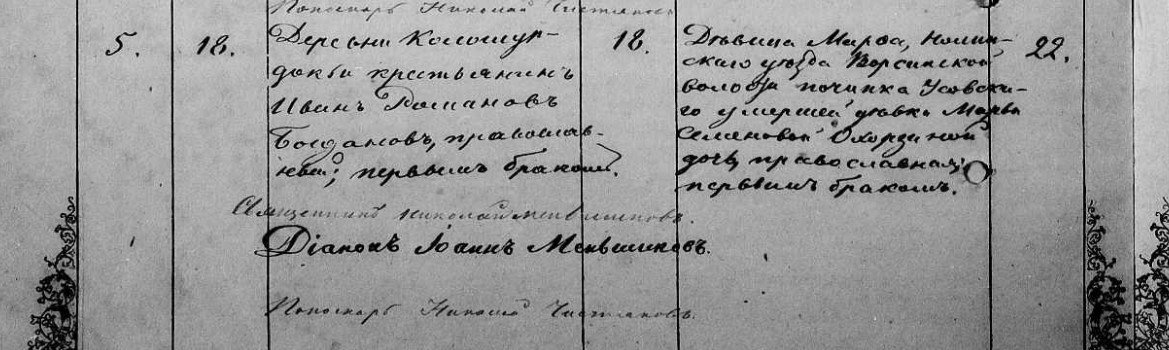 Псаломщикъ Николай Чистяковъ
5. 18. Деревни Колошур-
докби крестьянинъ
Иванъ Романовъ
Богдановъ, православ-
ный; первымъ бракомъ.
18. Дѣвица Марѳа, Нолин-
скаго уѣзда Версинской
волости починка Усовска-
го умершей дѣвки Марьи
Семеновой Охорзиной
дочь, православная;
первымъ бракомъ.
22.
Священникъ Николай Меньшиковъ.
Діаконъ Іоаннъ Меньшиковъ.
Николай Чистяковъ.